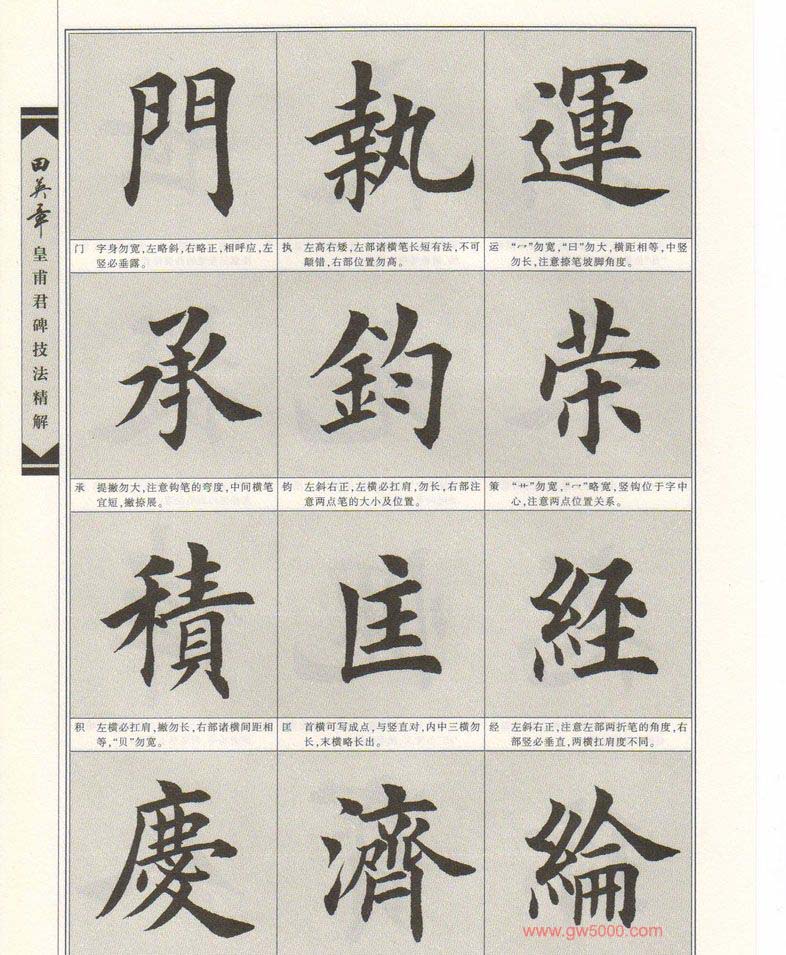 田英章
皇甫君碑技法精解
運
运 “冖”勿宽,“曰”勿大,横距相等,中竖
勿长,注意捺笔坡脚角度。
策
策 “艹”勿宽,“冖”略宽,竖钩位于字中
心,注意两点位置关系。
経
经 左斜右正,注意左部两折笔的角度,右
部竖必垂直,两横扛肩度不同。
綸
執
执 左高右矮,左部诸横笔长短有法,不可
颠错,右部位置勿高。
鈞
钧 左斜右正,左横必扛肩,勿长,右部注
意两点笔的大小及位置。
匡
匡 首横可写成点,与竖直对,内中三横勿
长,末横略长出。
濟
門
门 字身勿宽,左略斜,右略正,相呼应,左
竖必垂露。
承
承 提撇勿大,注意钩笔的弯度,中间横笔
宜短,撇捺展。
積
积 左横必扛肩,撇勿长,右部诸横间距相
等,“贝”勿宽。
慶
www.gw5000.com